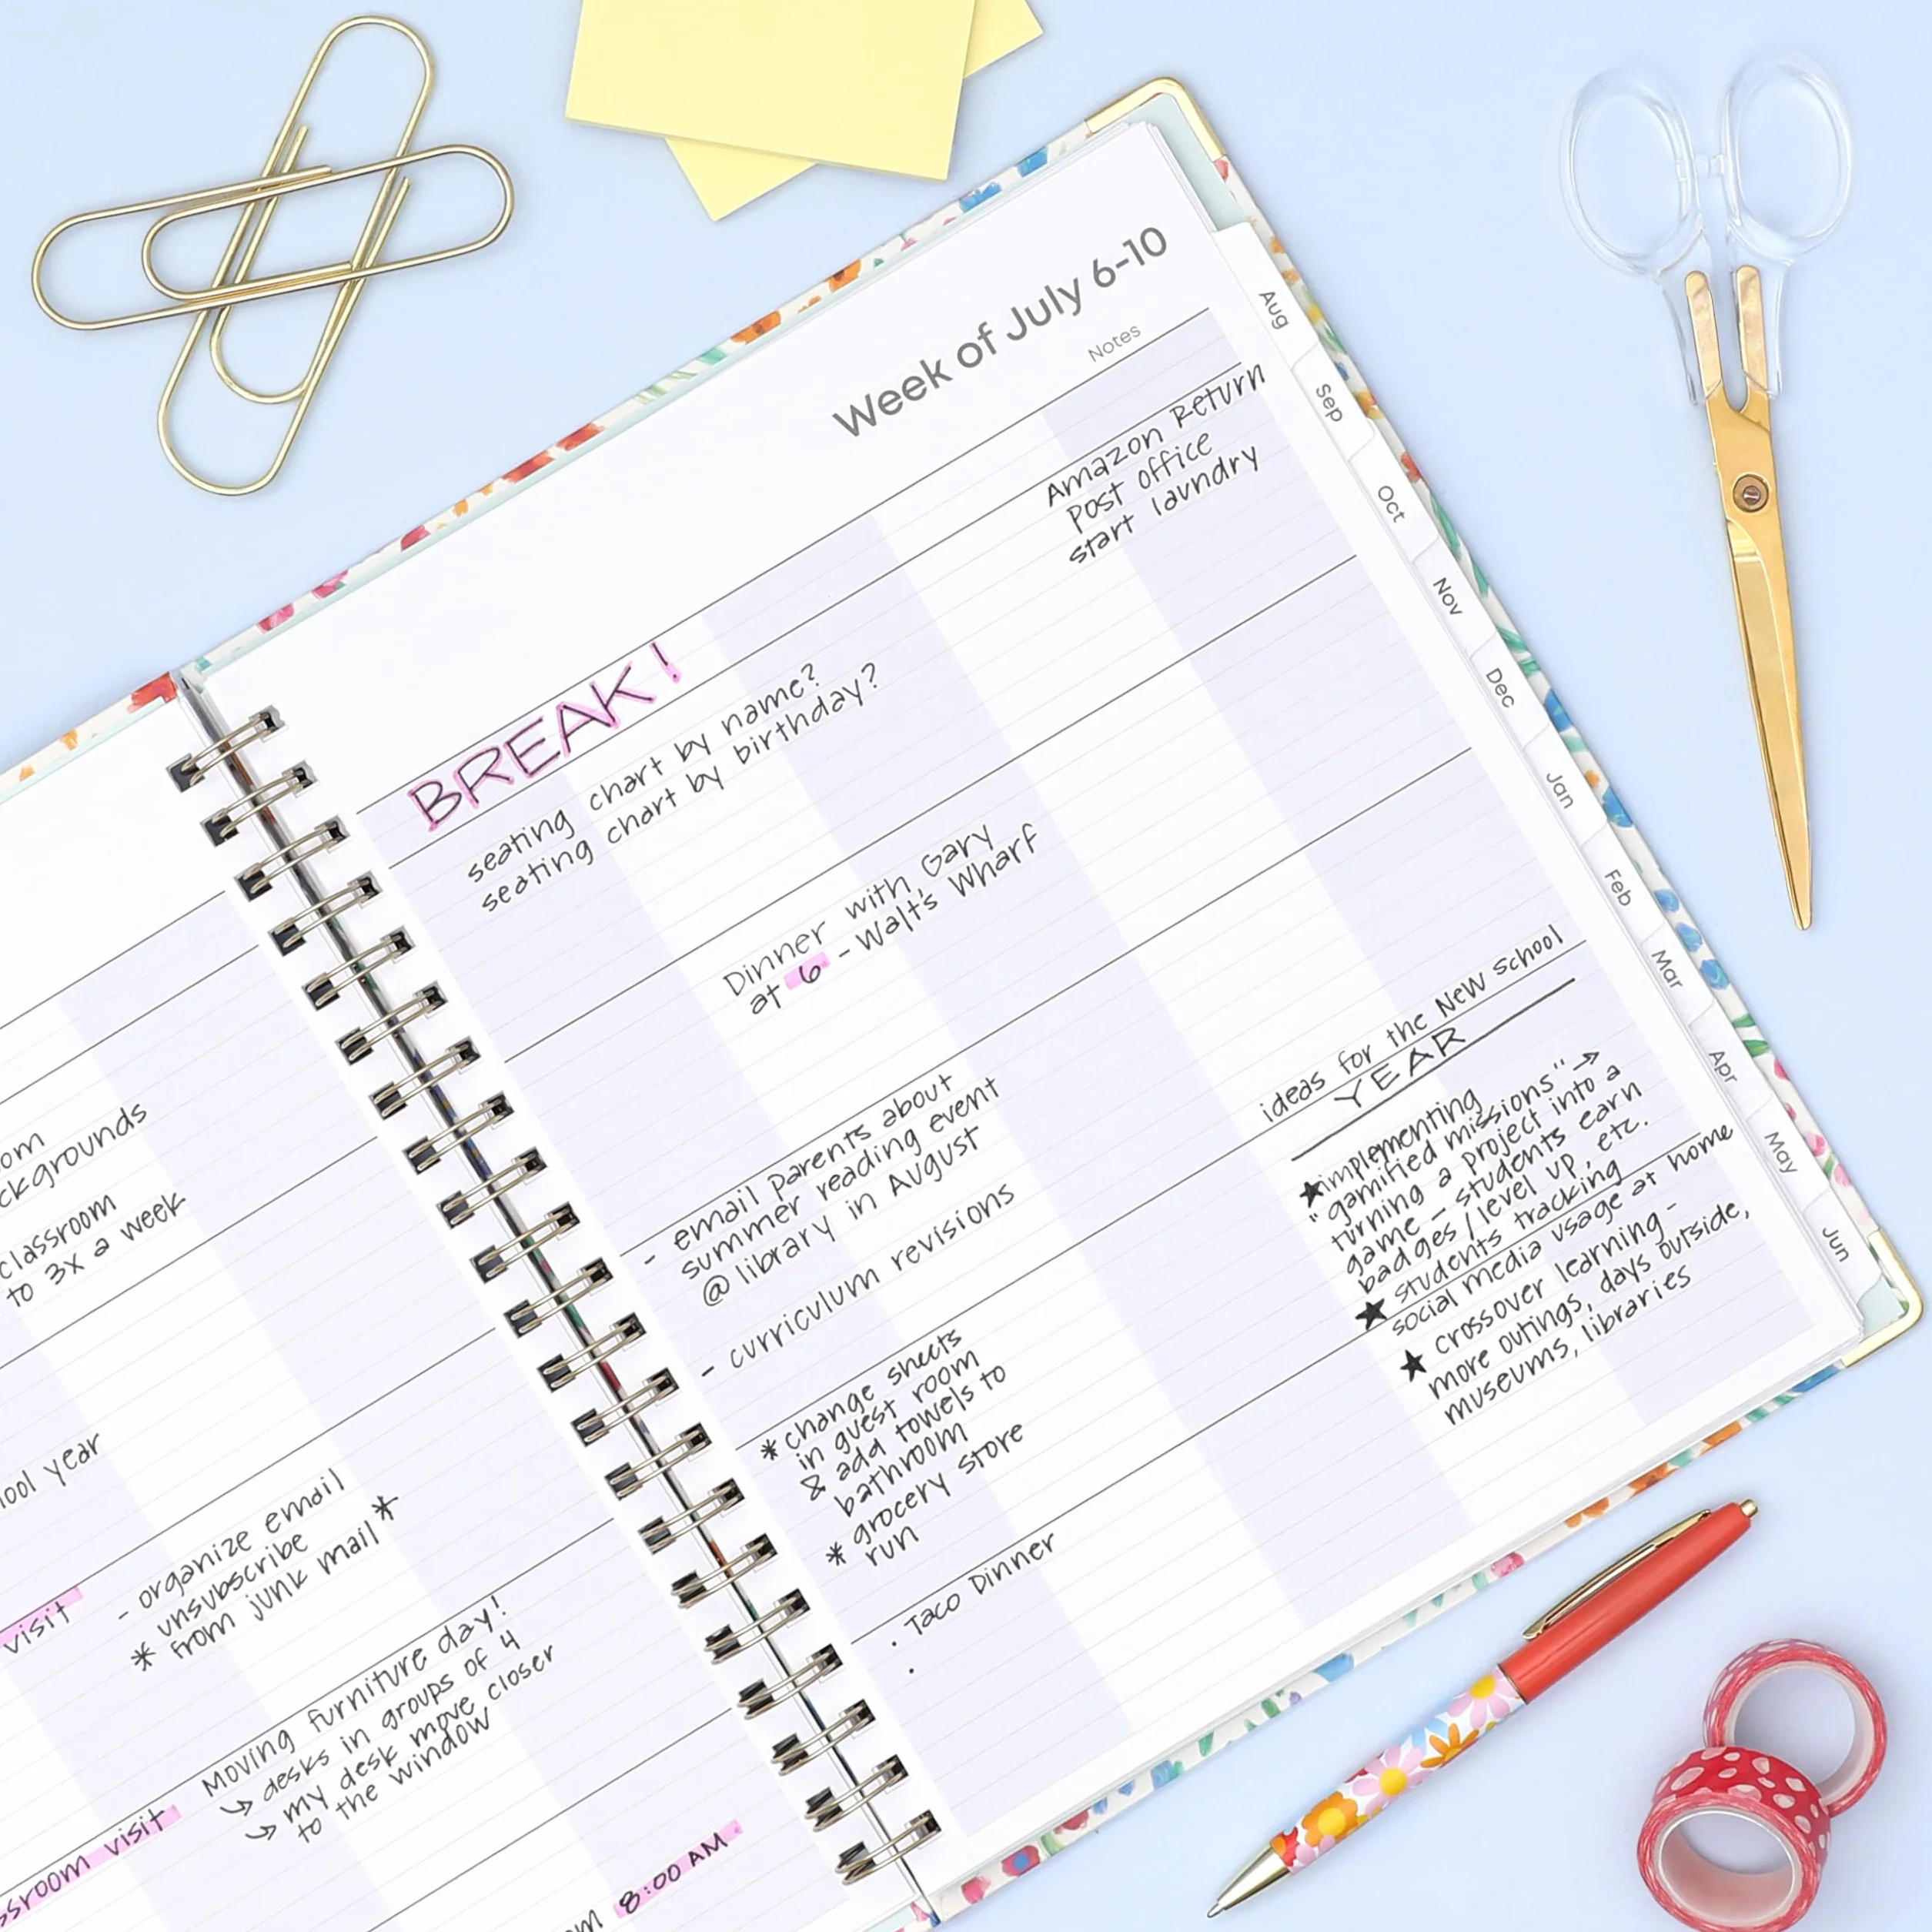 Week of July 6-10
Notes
BREAK!
Amazon Return
Post office
start laundry
seating chart by name?
seating chart by birthday?
Dinner with Gary
at 6 - Walt's Wharf
- email parents about
summer reading event
@ library in August
- curriculum revisions
ideas for the New school
YEAR
★ implementing
"gamified missions" →
turning a project into a
game - students earn
badges/level up, etc.
★ students tracking
social media usage at home
★ crossover learning -
more outings, days outside,
museums, libraries
* change sheets
in guest room
& add towels to
bathroom
* grocery store
run
· Taco Dinner
·
Aug
Sep
Oct
Nov
Dec
Jan
Feb
Mar
Apr
May
Jun
classroom
to 3x a week
year
visit
- organize email
* unsubscribe
from junk mail *
Moving furniture day!
↳ desks in groups of 4
↳ my desk move closer
to the window
visit
8:00 AM